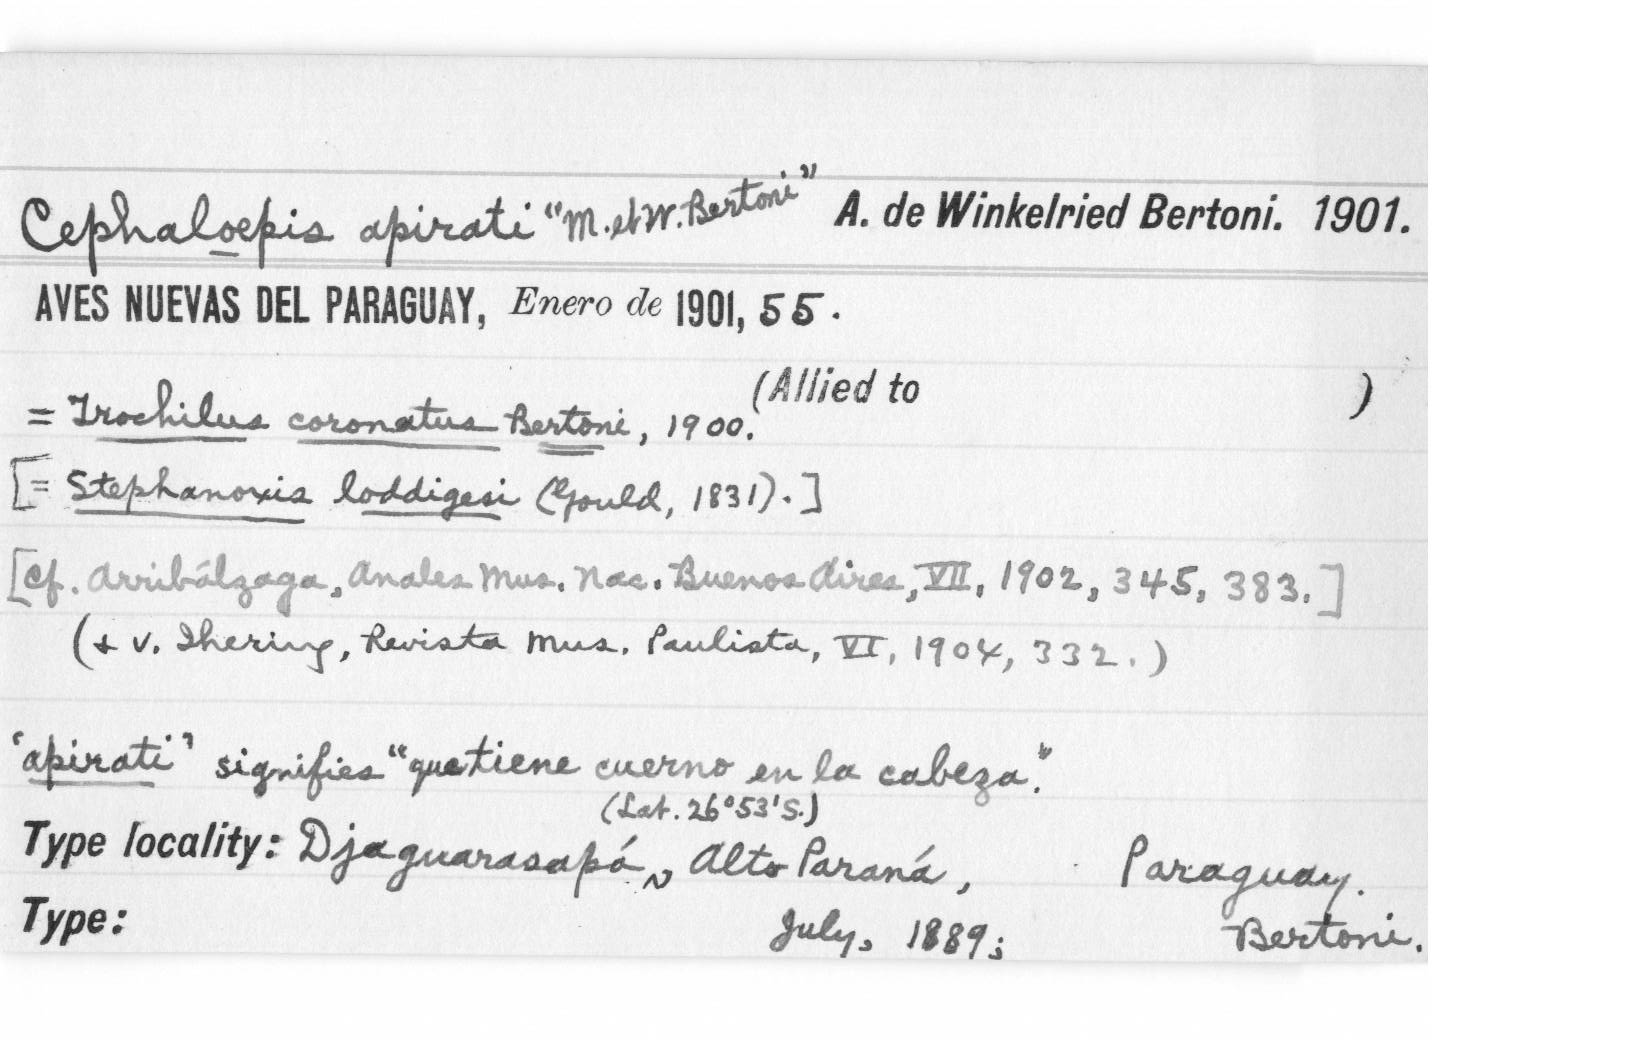 Cephaloepis apirati "M. et W. Bertoni" A. de Winkelried Bertoni. 1901.
AVES NUEVAS DEL PARAGUAY, Enero de 1901, 55.
(Allied to )
= Trochilus coronatus Bertoni, 1900.
[= Stephanoxis loddigesi (Gould, 1831).]
[Cf. Arribálzaga, Anales Mus. Nac. Buenos Aires, VII, 1902, 345, 383.]
(& v. Ihering, Revista Mus. Paulista, VI, 1904, 332.)
'apirati' signifies "que tiene cuerno en la cabeza."
(Lat. 26°53'S.)
Type locality: Djaguarasapá, Alto Paraná, Paraguay.
Type: July, 1889; Bertoni.